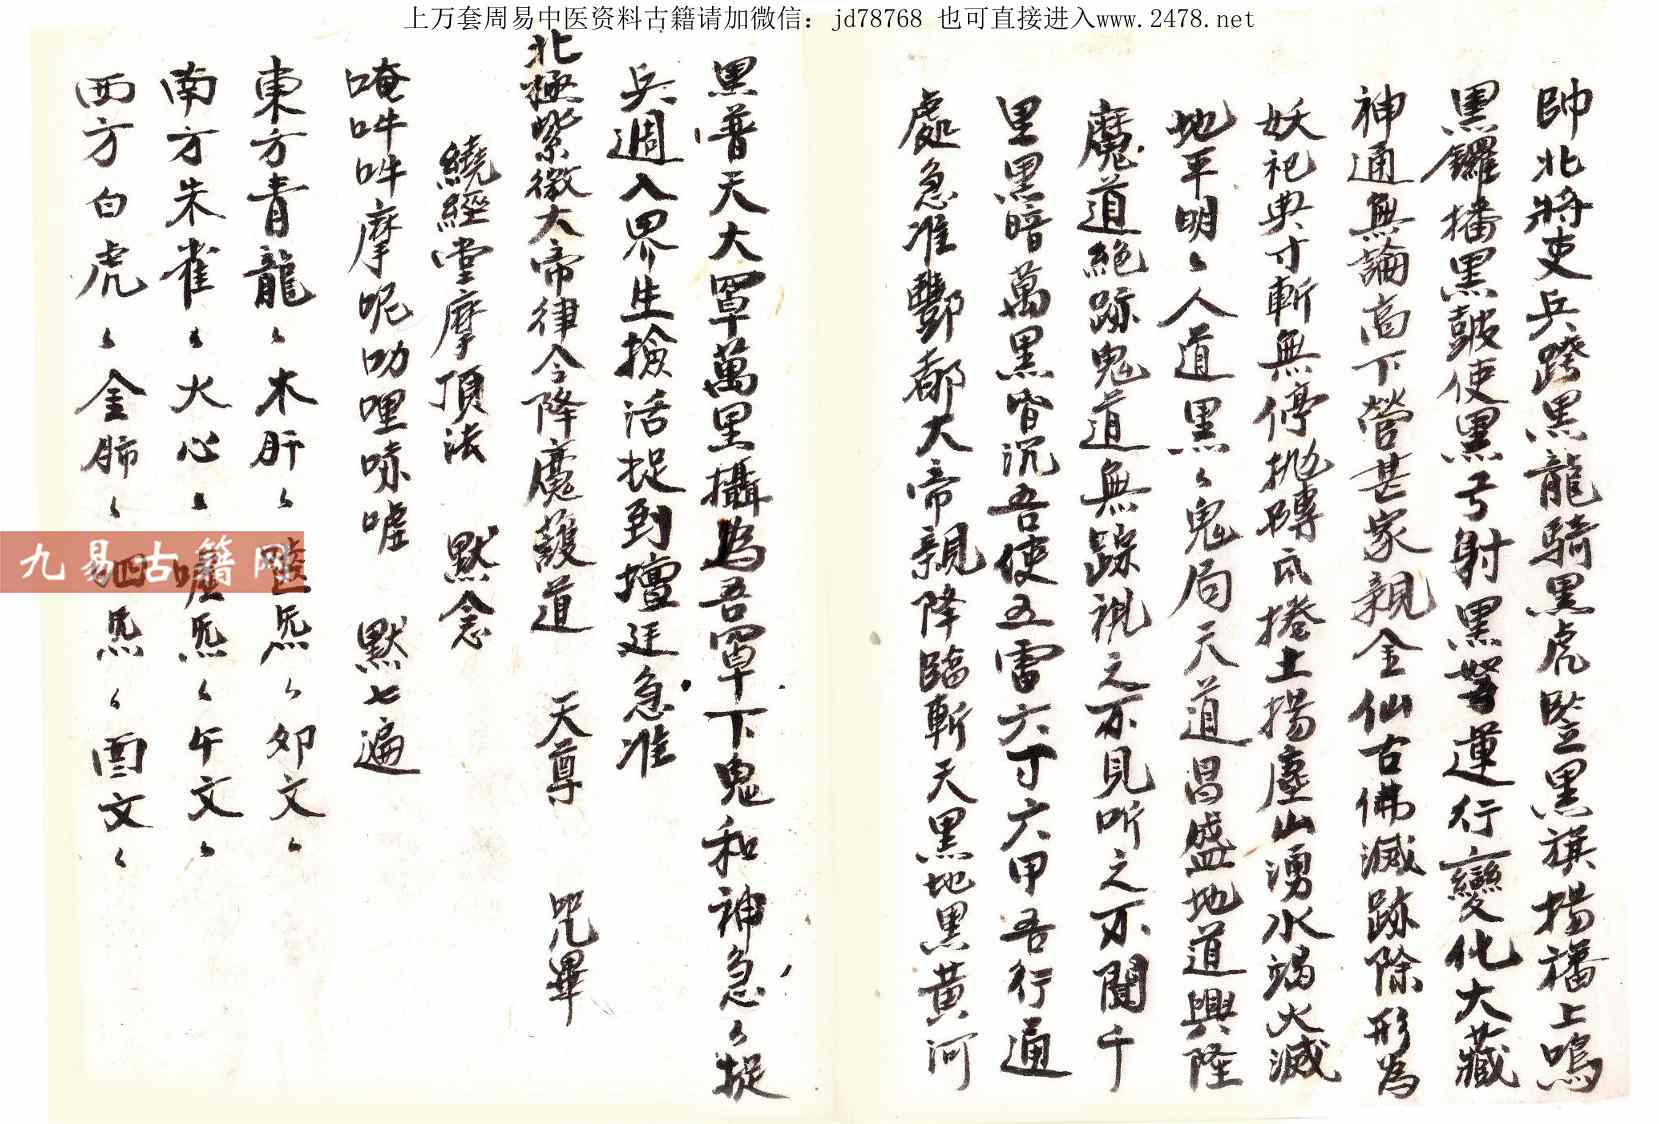 上万套周易中医资料古籍请加微信：jd78768 也可直接进入www.2478.net
帥北將吏兵跨黑龍騎黑虎竪黑旗揚旛上鳴
黑鑼播黑皷使黑弓射黑弩運行變化大藏
神通無論高下營甚家親金仙古佛滅跡除形為
妖祀典寸斬無停抛磚瓦捲土揚塵山湧水渴火滅
地平明〻人道黑〻鬼局天道昌盛地道興隆
魔道絕跡鬼道無踪視之不見听之不聞千
里黑暗萬黑皆沉吾使五雷六丁六甲吾行通
處急准酆都大帝親降臨斬天黑地黑黃河
黑普天大罩萬里攝為吾罩下鬼和神急〻捉
兵週入界生擒活捉到壇廷急准
北極紫微大帝律令降魔護道 天尊 咒畢
繞經堂摩頂法 默念
唵吽吽摩呢叻哩㖿嘘 默七遍
東方青龍〻木肝〻 炁〻卯文〻
南方朱雀〻火心〻 炁〻午文〻
西方白虎〻金肺〻呬炁〻酉文〻
九易古籍网